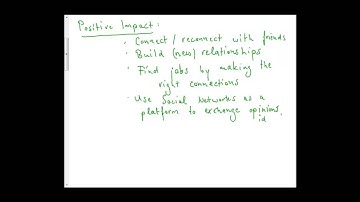 Positive Impact:
· Connect / reconnect with friends
· Build (new) relationships
· Find jobs by making the
right connections
· Use Social Networks as a
platform to exchange opinions,
id